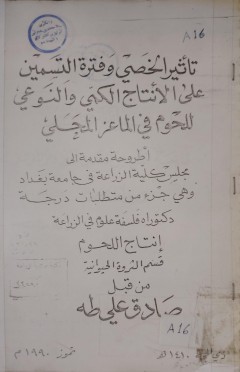 A16
تأثير الخصي وفترة التسمين
على الأنتاج الكمي والنوعي
للحوم في الماعز المحلي
أطروحة مقدمة الى
مجلس كلية الزراعة في جامعة بغداد
وهي جزء من متطلبات درجة
دكتوراه فلسفة علوم في الزراعة
إنتاج اللحوم
قسم الثروة الحيوانية
من قبل
صادق علي طه
A16
١٤١٠ هـ
تموز ١٩٩٠ م